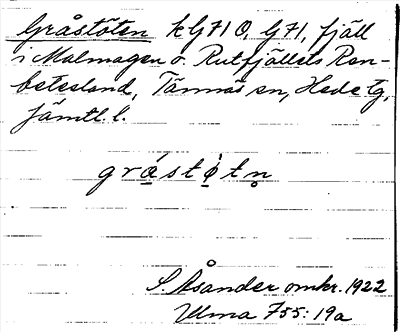 Gråstöten kG710, G71, fjäll
i Malmagen o. Rutfjällets Ren-
betesland, Tännäs sn, Hede tg,
Jämtl. l.
gråstötn
S. Åsander omkr. 1922
Ulma 755:19a